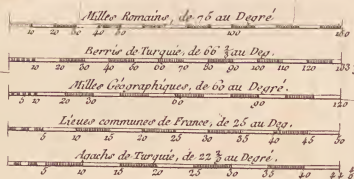 Milles Romains, de 75 au Degré
10 20 30 40 50 100 150
Berris de Turquie, de 66 ⅔ au Deg.
10 20 30 40 50 60 70 80 90 100 110 120 133
Milles Géographiques, de 60 au Degré.
5 10 20 30 60 90 120
Lieues communes de France, de 25 au Deg.
5 10 15 20 25 30 35 40 45 50
Agachs de Turquie, de 22 ⅔ au Degré.
5 10 15 20 25 30 35 40